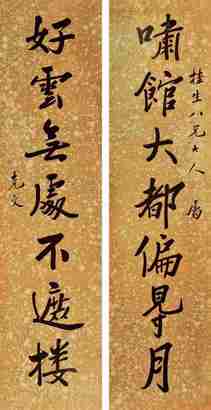 嘯館大都偏㝵月
桂生八兄大人 屬
好雲無處不遮樓
克文